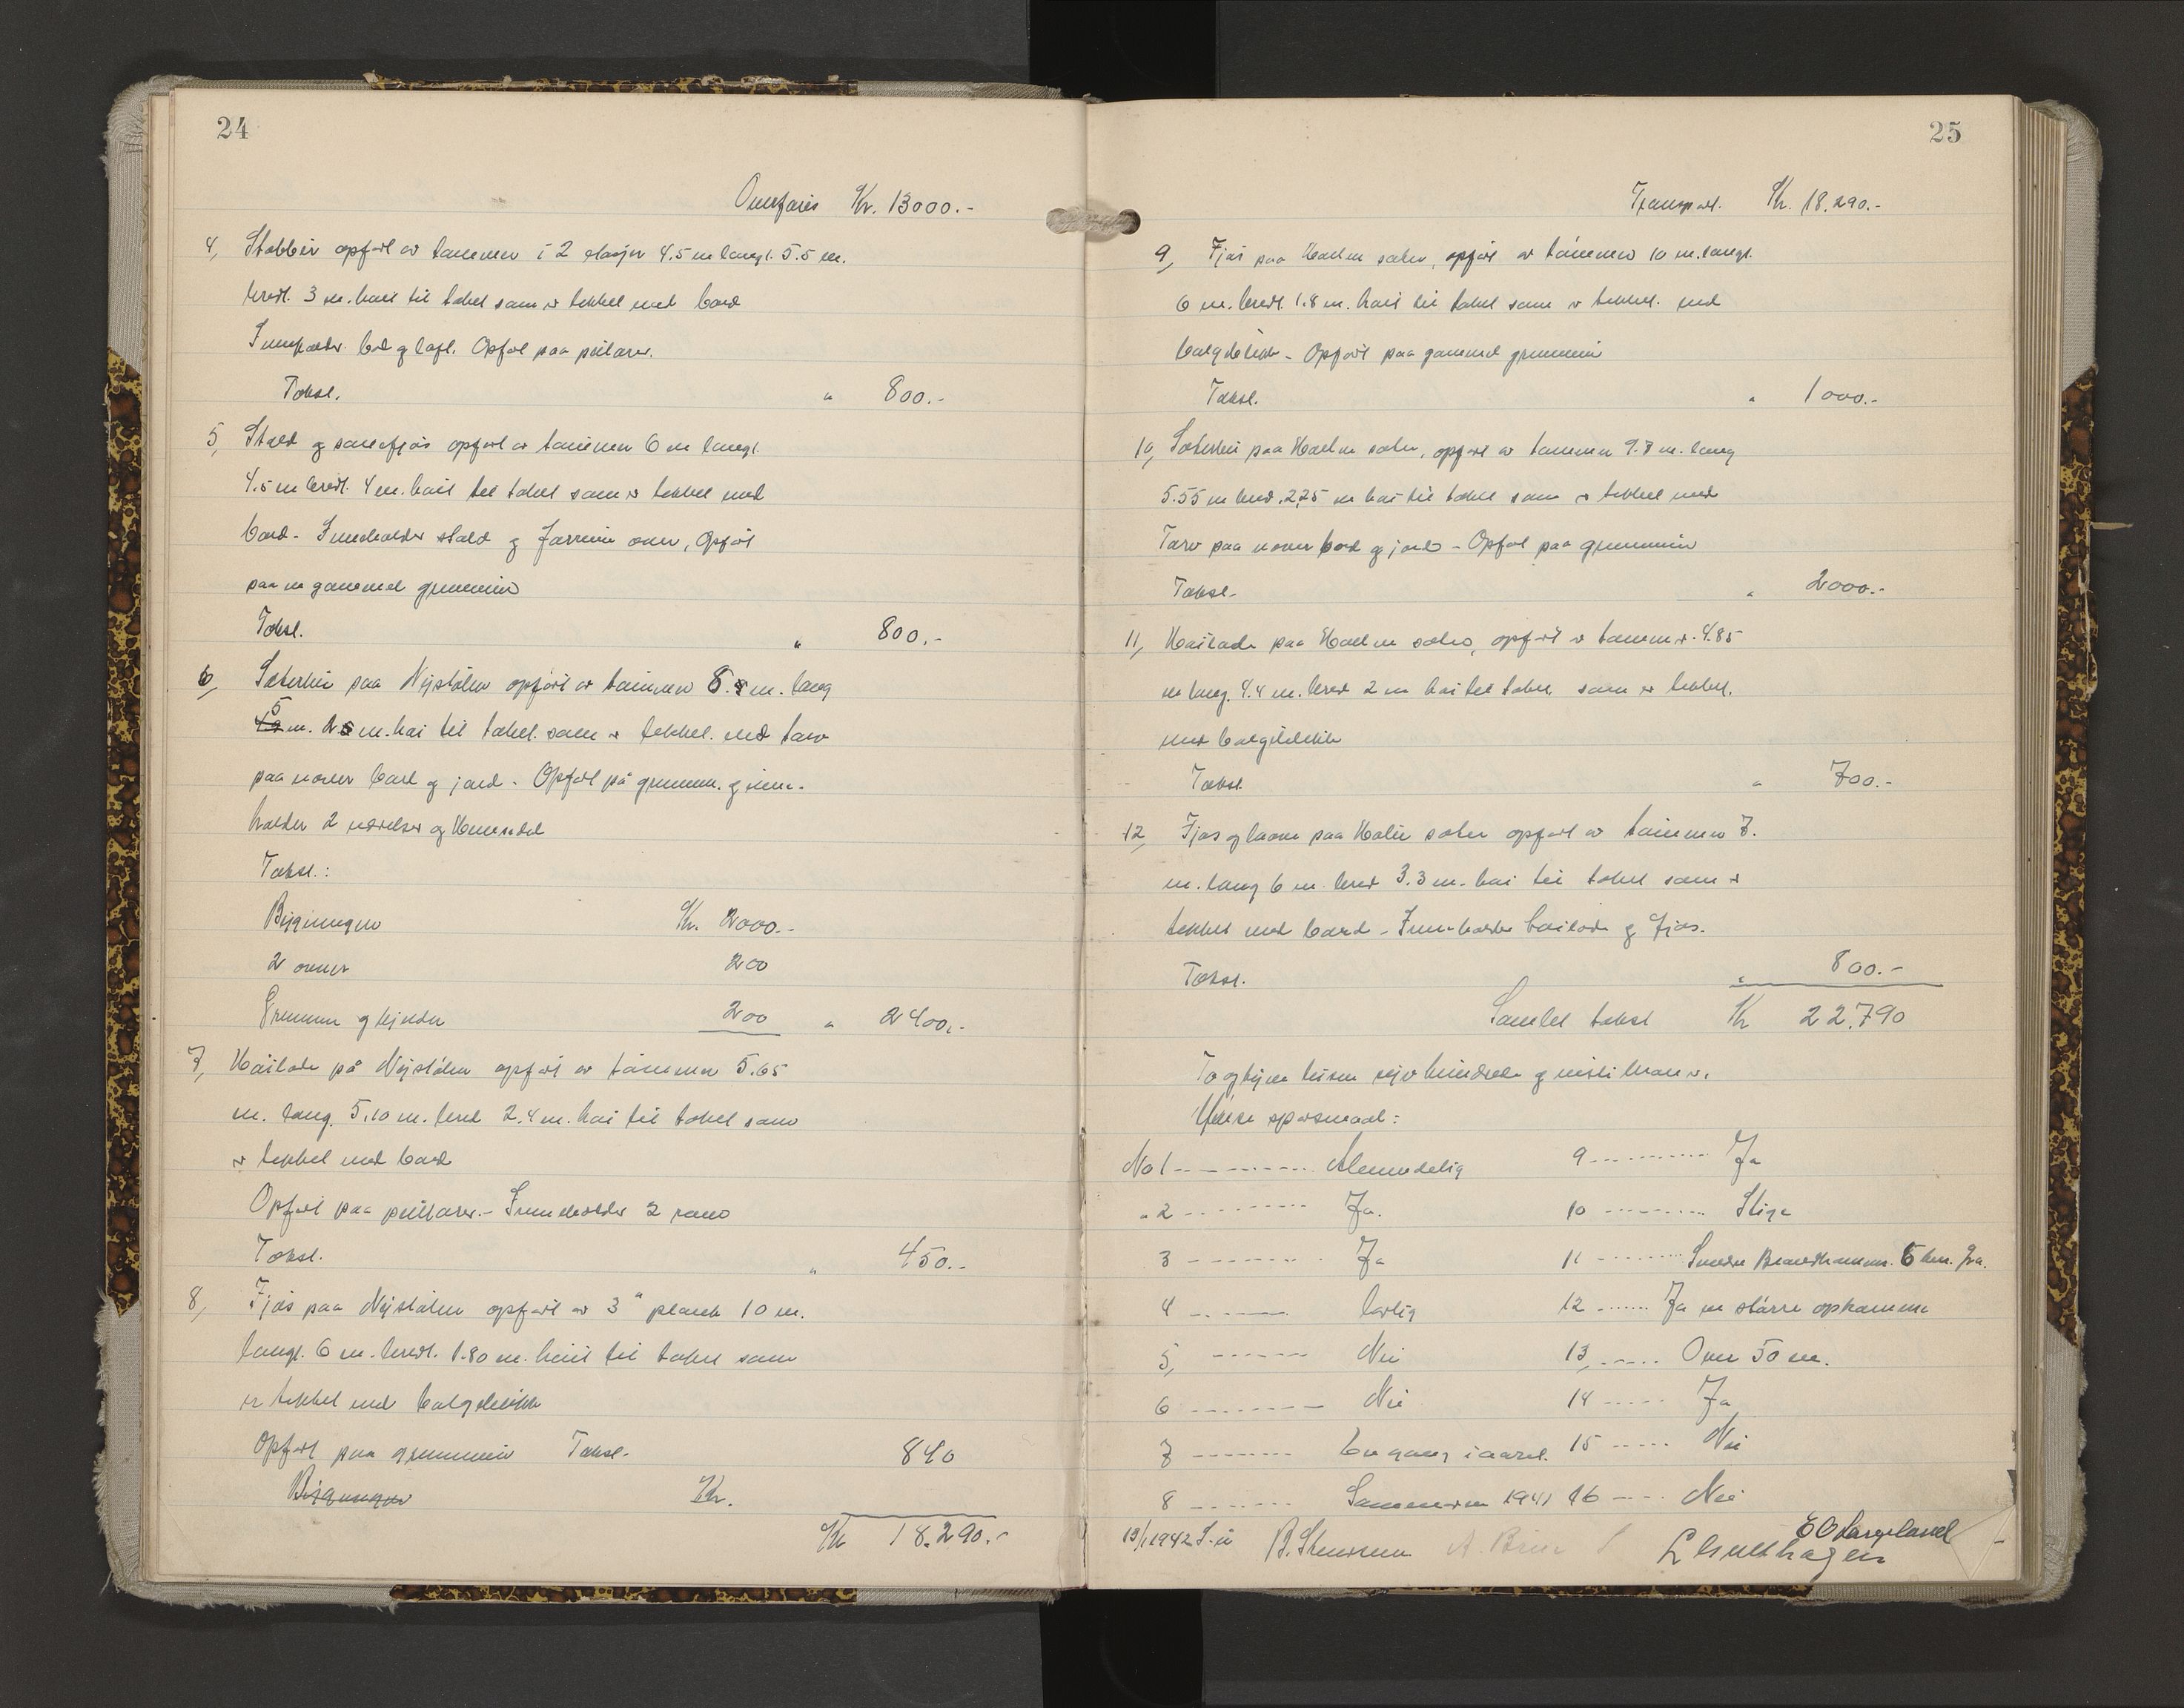 24
Overføres Kr. 13000.-
4, Stabbur opført av tømmer i 2 etasjer 4.5 m langt. 5.5 m.
bredt. 3 m. høit til taket som er tekket med bord
Inneholder bod og loft. Opført paa peilarer.
Takst. " 800.-
5, Stald og sauefjøs opført av tømmer 6 m langt.
4.5 m bredt. 4 m. høit til taket som er tekket med
bord - Inneholder stald og forrum over, Opført
paa en gammel grunnmur
Takst. " 800.-
6, Sæterbu paa Nystølen opført av tømmer 8. m. lang
5 m. 2.5 m. høi til taket. som er tekket. med torv
paa never bord og jord - Opført på grunnm. og inne-
holder 2 værelser og
Takst.:
Bygningen Kr. 2000.-
2 ovner 200
Grunnmur og kjelder 200 " 2400.-
7, Høilade på Nystølen opført av tømmer 5.65
m. lang. 5.10 m. bred 2.4 m. høi til taket som
er tekket med bord
Opført paa peilarer. - Inneholder 2 rum
Takst. " 450.-
8, Fjøs paa Nystølen opført av 3" plank 10 m.
langt. 6 m. bredt. 1.80 m. høit til taket som
er tekket med bølgeblikk
Opført paa grunnmur Takst. 840
Bygningen Kr.
Kr 18.290.-
25
Transport. Kr. 18.290.-
9, Fjøs paa sæter, opført av tømmer 10 m. langt.
6 m. bredt. 1.8 m. høit til taket som er tekket. med
bølgeblikk - Opført paa gammel grunnmur
Takst. " 1000.-
10, Sæterbu paa sæter, opført av tømmer 9.8 m. lang
5.55 m bred. 2.25 m høi til taket som er tekket med
Torv paa never bord og jord - Opført paa grunnmur
Takst - " 2000.-
11, Høilade paa sæter, opført av tømmer. 4.85
m lang. 4.4 m. bred 2 m høi til taket, som er tekket.
med bølgeblikk
Takst " 700.-
12, Fjøs og laave paa sæter opført av tømmer 7.
m. lang 6 m. bred 3.3 m. høi til taket som er
tekket med bord - Inneholder høilade og fjøs.
Takst. " 800.-
Samlet takst Kr 22.790
To og tyve tusen syv hundrede og nitti kroner.
spørsmaal:
No 1 ---------- Almindelig 9 ---------- Ja
" 2 ---------- Ja. 10 ---------- Stige
3 ---------- Ja 11 ---------- 5 km. fra.
4 ---------- Lovlig 12 ------- Ja en større opkomme
5, ---------- Nei 13, ------ Over 50 m.
6 ---------- Nei 14 ------ Ja
7 ---------- En gang i aaret. 15 ------ Nei
8 ---------- Sommeren 1941 16 ----- Nei